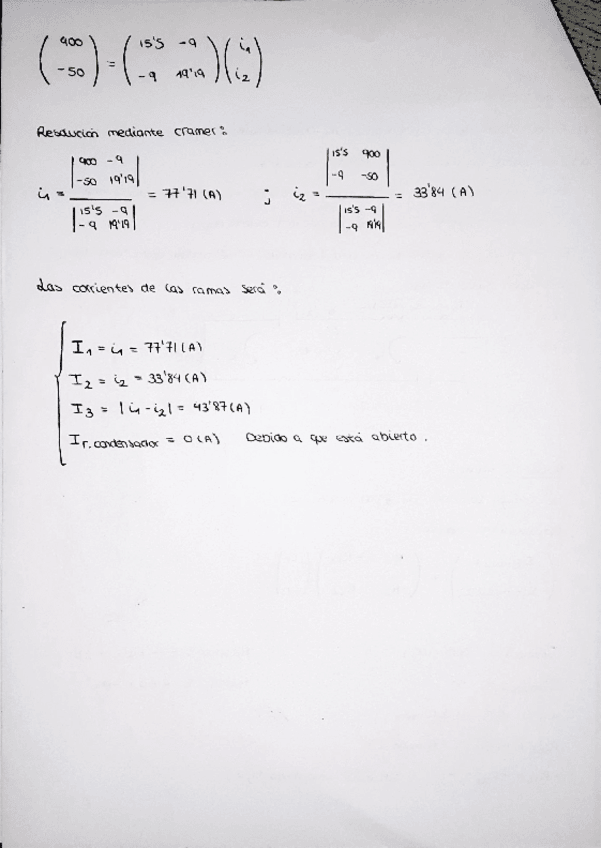 (900 / -50) = (15'5 -9 / -9 19'19) (i₁ / i₂)
Resolución mediante cramer:
i₁ = |900 -9 / -50 19'19| / |15'5 -9 / -9 19'19| = 77'71 (A) ; i₂ = |15'5 900 / -9 -50| / |15'5 -9 / -9 19'19| = 33'84 (A)
Las corrientes de las ramas será:
I₁ = i₁ = 77'71 (A)
I₂ = i₂ = 33'84 (A)
I₃ = |i₁ - i₂| = 43'87 (A)
I r.condensador = 0 (A) Debido a que está abierto.